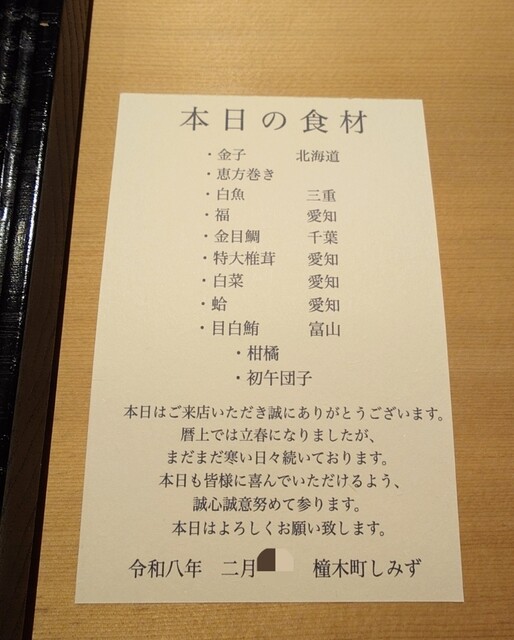 本日の食材
・金子 北海道
・恵方巻き
・白魚 三重
・福 愛知
・金目鯛 千葉
・特大椎茸 愛知
・白菜 愛知
・蛤 愛知
・目白鮪 富山
・柑橘
・初午団子
本日はご来店いただき誠にありがとうございます。
暦上では立春になりましたが、
まだまだ寒い日々続いております。
本日も皆様に喜んでいただけるよう、
誠心誠意努めて参ります。
本日はよろしくお願い致します。
令和八年 二月 橦木町しみず